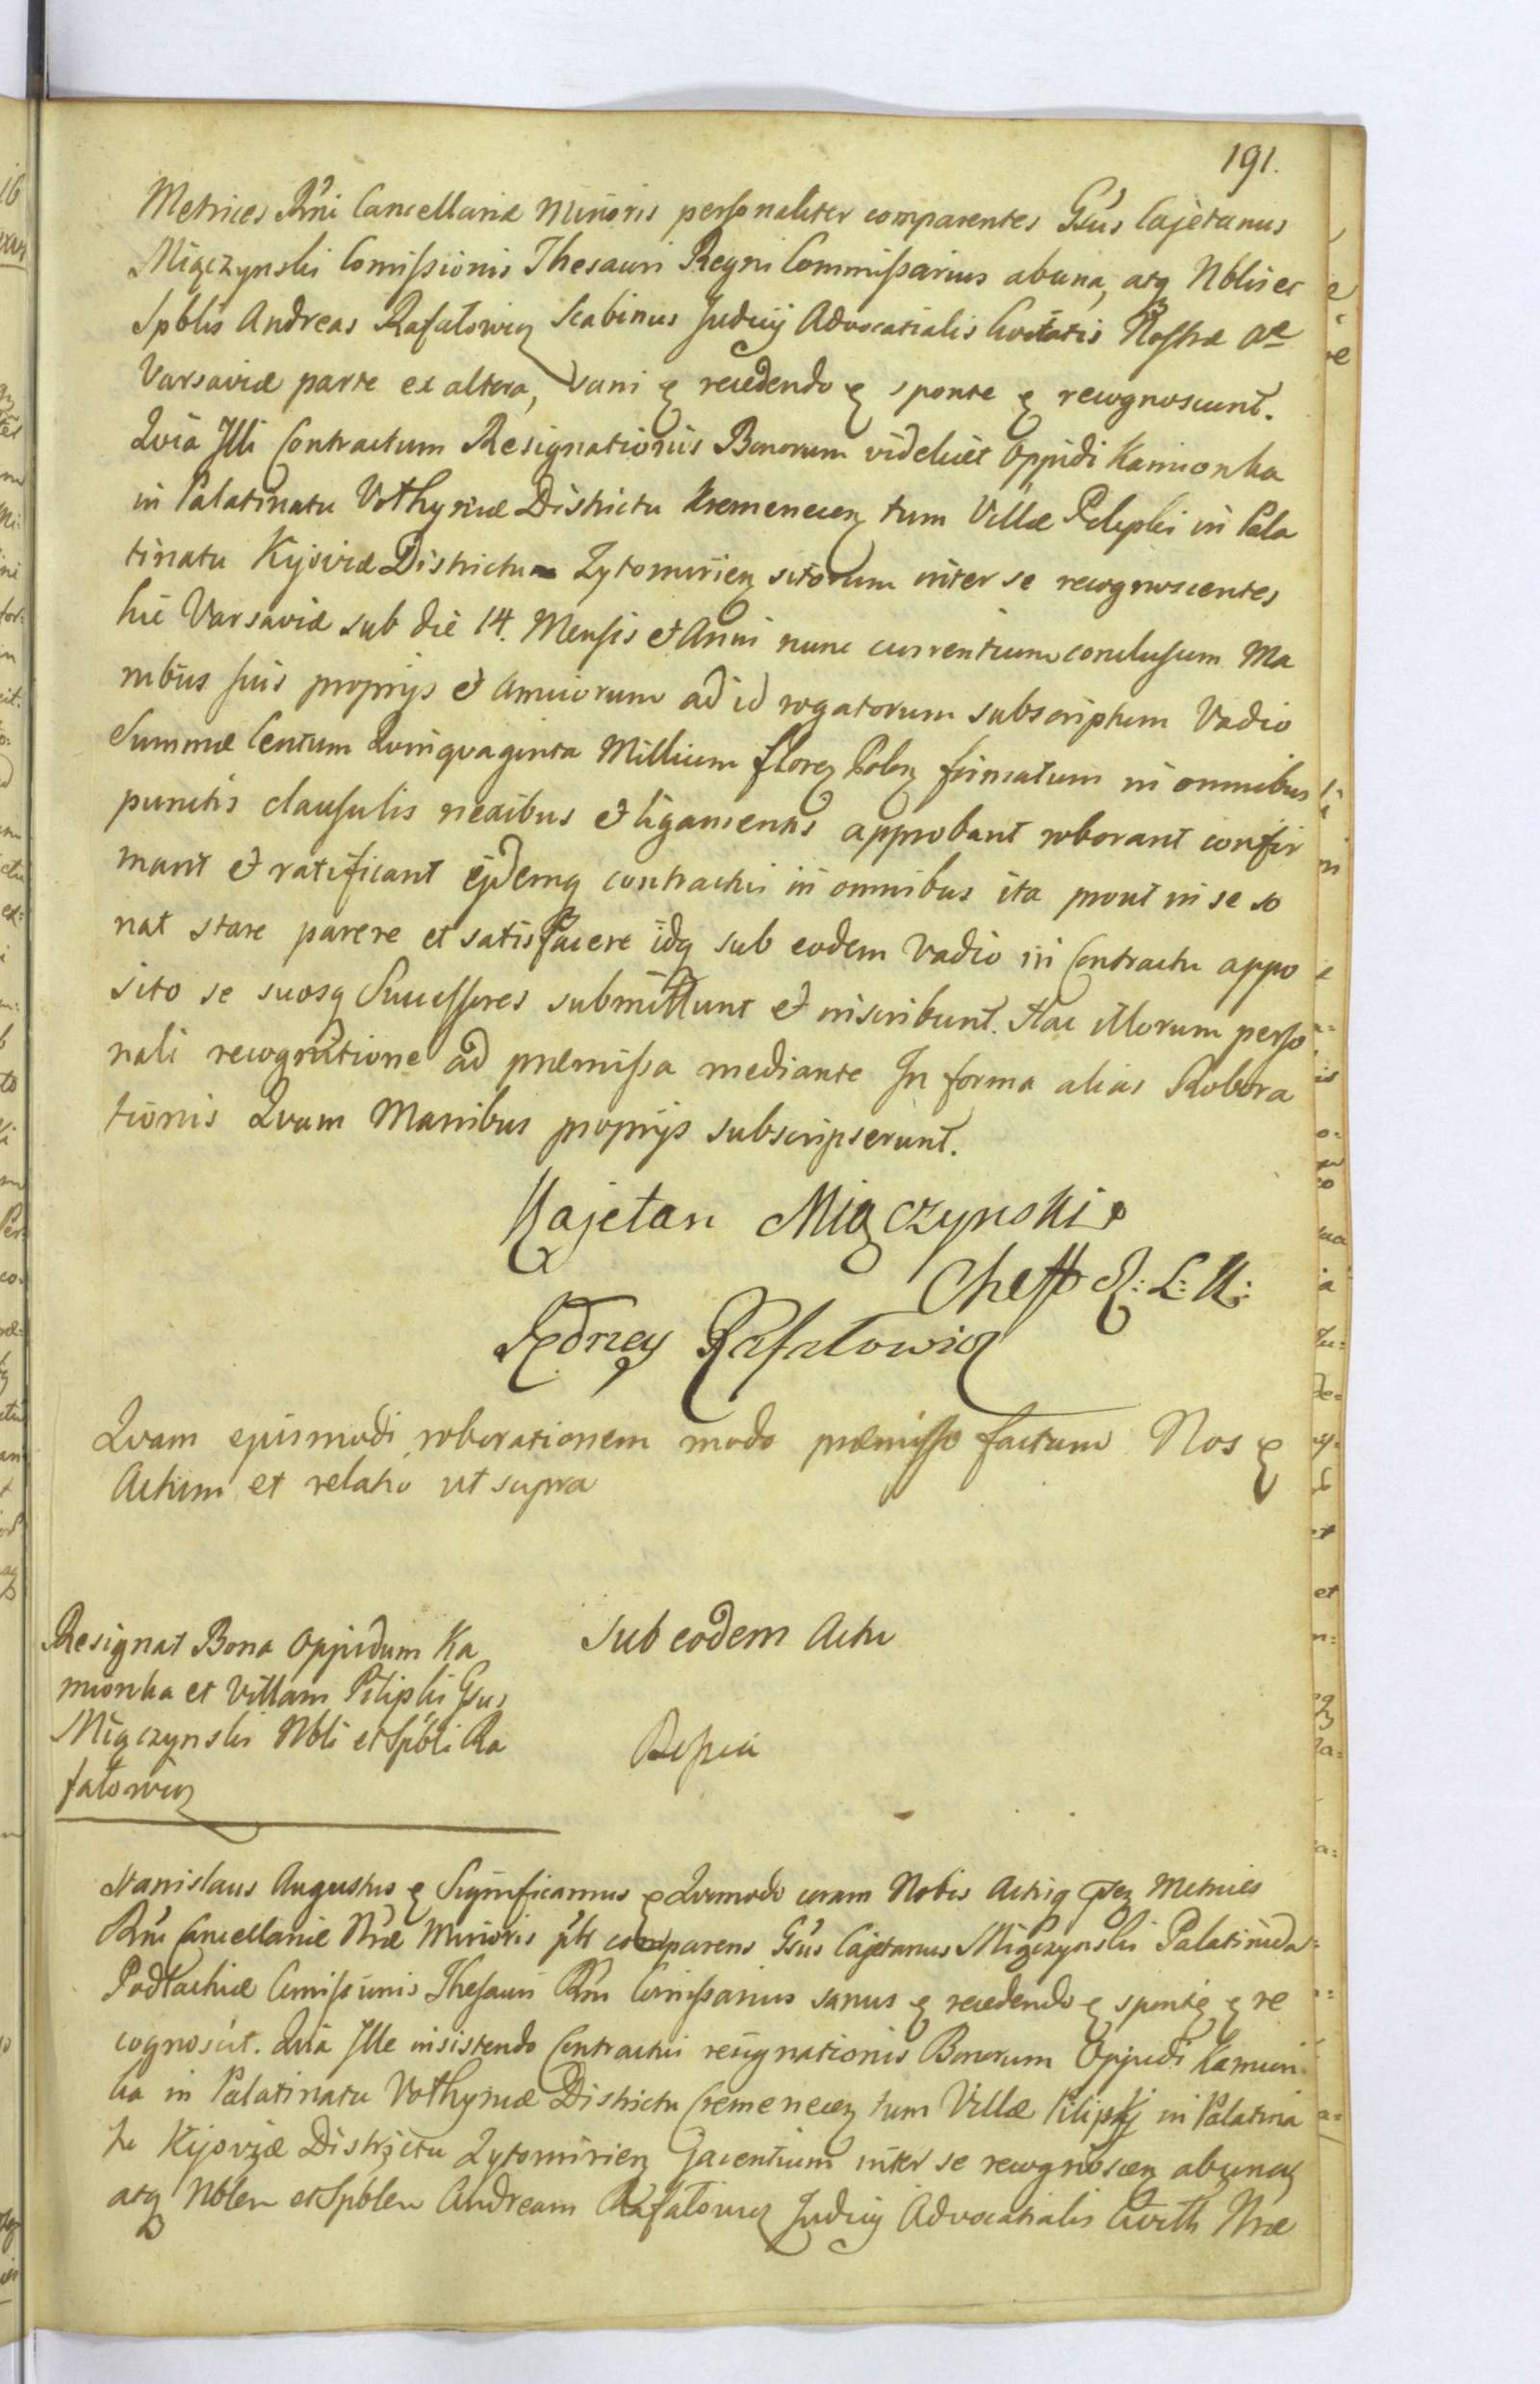 191.
Metrices Rni Cancellariæ Minoris personaliter comparentes Gsus Cajetanus
Miączynski Comissionis Thesauri Regni Commissarius abuna, atq Nblis et
Spblis Andreas Rafałowicz Scabinus Judicij Advocatialis Civitatis Nostræ
Varsaviæ parte ex altera, Sani recedendo sponte recognoscunt.
Qvia Illi Contractum Resignationis Bonorum videlicet Oppidi Kamionka
in Palatinatu Vołhyniæ Districtu Kremenecen tum Villæ Pilipki in Pala
tinatu Kijoviæ Districtu Zytomirien sitorum inter se recognoscentes
hic Varsaviæ sub die 14. Mensis et Anni nunc currentium conclusum Ma
nibus suis proprijs et Amicorum ad id rogatorum subscriptum Vadio
Summæ Centum Qvinqvaginta Millium floren Polon firmatum in omnibus
punctis clausulis nexibus et ligamentis approbant roborant confir
mant et ratificant ejdemq contractui in omnibus ita prout in se so
nat stare parere et satisfacere idq sub eodem Vadio in Contractu appo
sito se suosq Successores submittunt et inscribunt. Hac illorum perso
nali recognitione ad præmissa mediante In forma alias Robora
tionis Qvam Manibus proprijs subscripserunt.
Kajetan Miączynski
Cheff R: L: K:
Jędrzey Rafałowicz
Qvam ejusmodi roborationem modo præmisso factam Nos
Actum et relatio ut supra
Resignat Bona Oppidum Ka
mionka et Villam Pilipki Gsus
Miączynski Nbli et Spbli Ra
fałowicz
Sub eodem Actu
Stanislaus Augustus Significamus Qvomodo coram Nobis Actisq Metrices
Rni Cancellariæ Nræ Minoris comparens Gsus Cajetanus Miączynski Palatinida
Podlachiæ Comissionis Thesauri Rni Comissarius sanus recedendo sponte re
cognoscit. Qvia Ille insistendo Contractui resignationis Bonorum Oppidi Kamion
ka in Palatinatu Vołhyniæ Districtu Cremenecen tum Villæ Pilipkj in Palatina
tu Kijoviæ Districtu Zytomirien Jacentium inter se recognoscen abuna
atq Nblem et Spblem Andream Rafałowicz Judicij Advocatialis Civitt Nræ